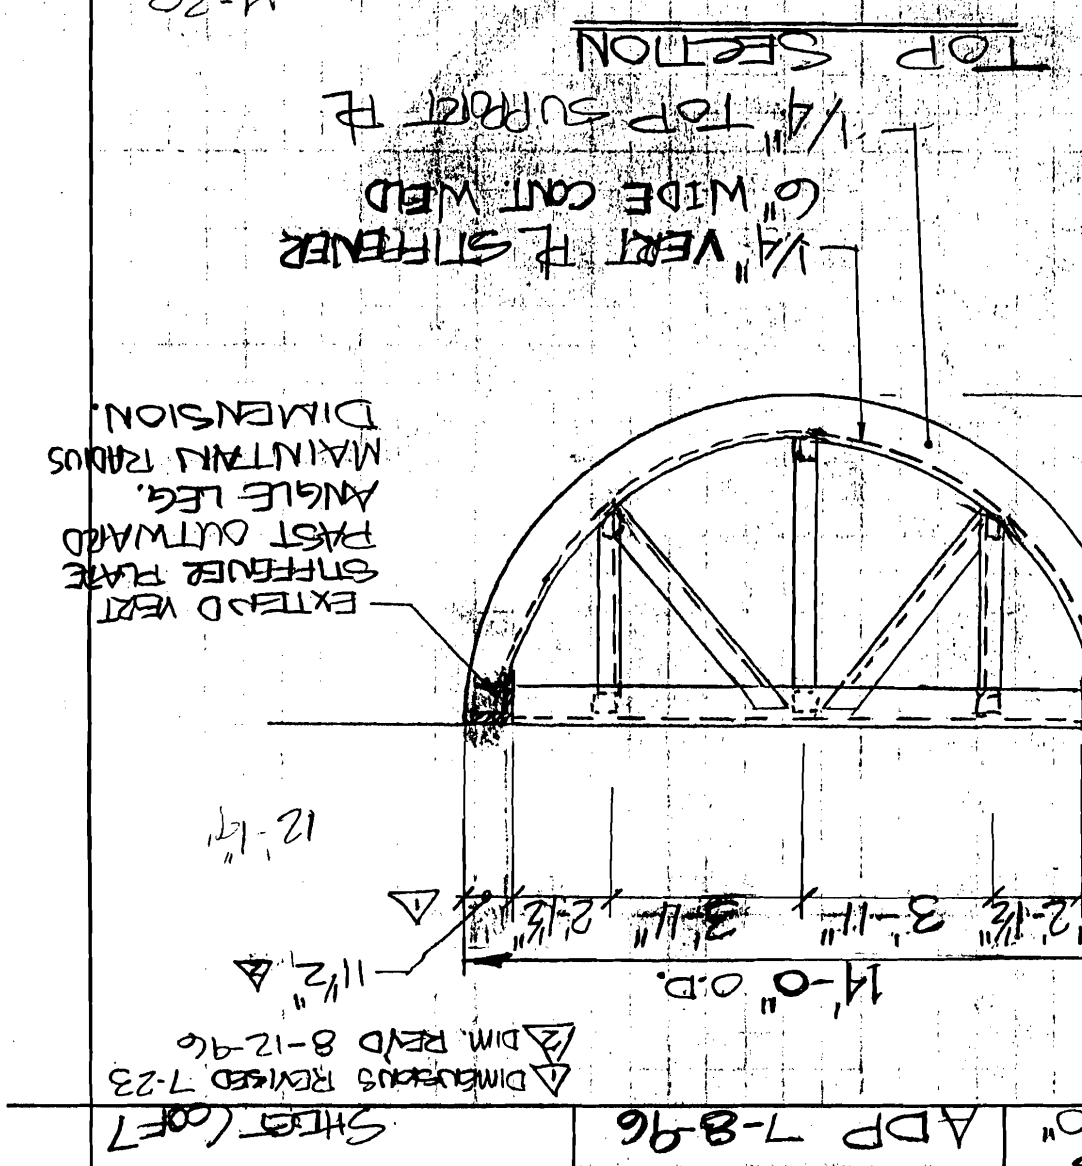 ADP 7-8-96
SHEET 6 OF 7
1 DIMENSIONS REVISED 7-23
2 DIM. REV'D 8-12-96
11½" 2
14'-0" O.D.
2'-1½" 3'-11" 3'-11" 2'-1½" 1
EXTEND VERT
STIFFENER PLATE
PAST OUTWARD
ANGLE LEG.
MAINTAIN RADIUS
DIMENSION.
1/4" VERT PL STIFFENER
6" WIDE CONT. WELD
1/4" TOP SUPPORT PL
TOP SECTION